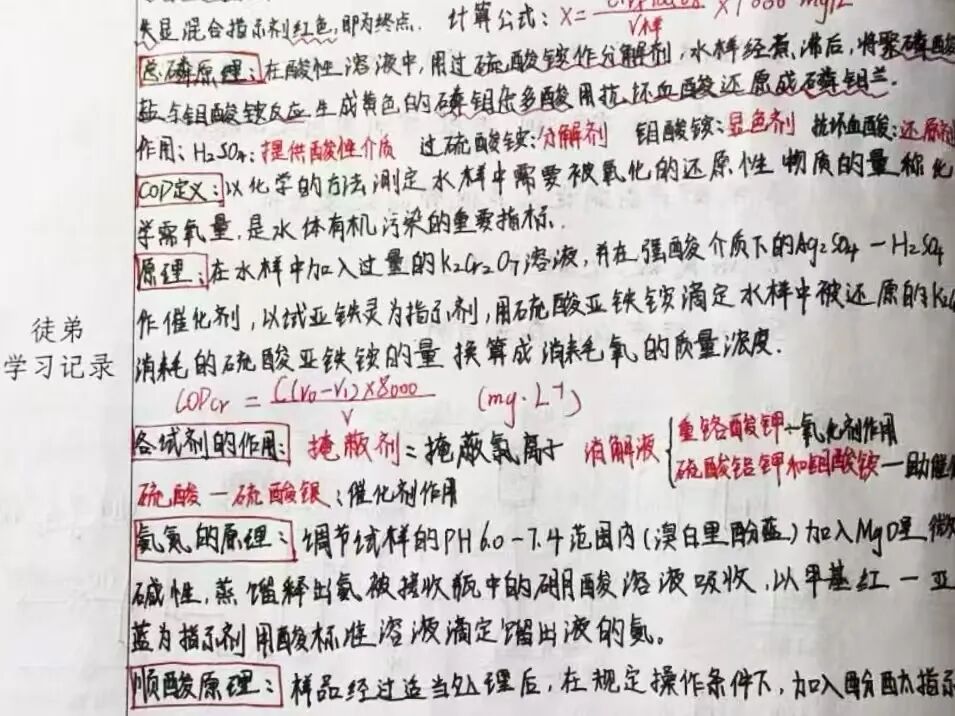 失显混合指示剂红色,即为终点. 计算公式: X= ×1000 mg/L
V样
总磷原理: 在酸性溶液中,用过硫酸铵作分解剂,水样经煮沸后,将聚磷酸
盐与钼酸铵反应生成黄色的磷钼杂多酸用抗坏血酸还原成磷钼兰.
作用: H₂SO₄: 提供酸性介质 过硫酸铵:分解剂 钼酸铵:显色剂 抗坏血酸:还原剂
COD定义: 以化学的方法测定水样中需要被氧化的还原性物质的量称化
学需氧量,是水体有机污染的重要指标.
原理: 在水样中加入过量的K₂Cr₂O₇溶液,并在强酸介质下的Ag₂SO₄-H₂SO₄
作催化剂,以试亚铁灵为指示剂,用硫酸亚铁铵滴定水样中被还原的K₂
徒弟
学习记录
消耗的硫酸亚铁铵的量换算成消耗氧的质量浓度.
CODcr = C(V₀-V₁)×8000 / V (mg·L⁻¹)
各试剂的作用: 掩蔽剂:掩蔽氯离子 消解液 { 重铬酸钾-氧化剂作用
硫酸铝钾和钼酸铵-助催
硫酸-硫酸银:催化剂作用
氨氮的原理: 调节试样的PH 6.0-7.4范围内(溴百里酚蓝)加入MgO呈微
碱性,蒸馏释出氨被接收瓶中的硼酸溶液吸收,以甲基红-亚
蓝为指示剂用酸标准溶液滴定馏出液的氨。
顺酸原理: 样品经过适当处理后,在规定操作条件下,加入酚酞指示